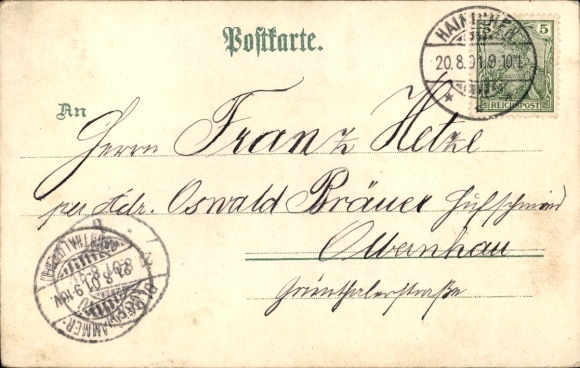 Postkarte.
HAINICHEN
20.8.01.9-10V.
5
REICHSPOST
An
Herrn Franz Hetzl
per Adr. Oswald Bräuer Hufschmied
Olbernhau
Grünthalerstraße
21.8.01.9-10V.